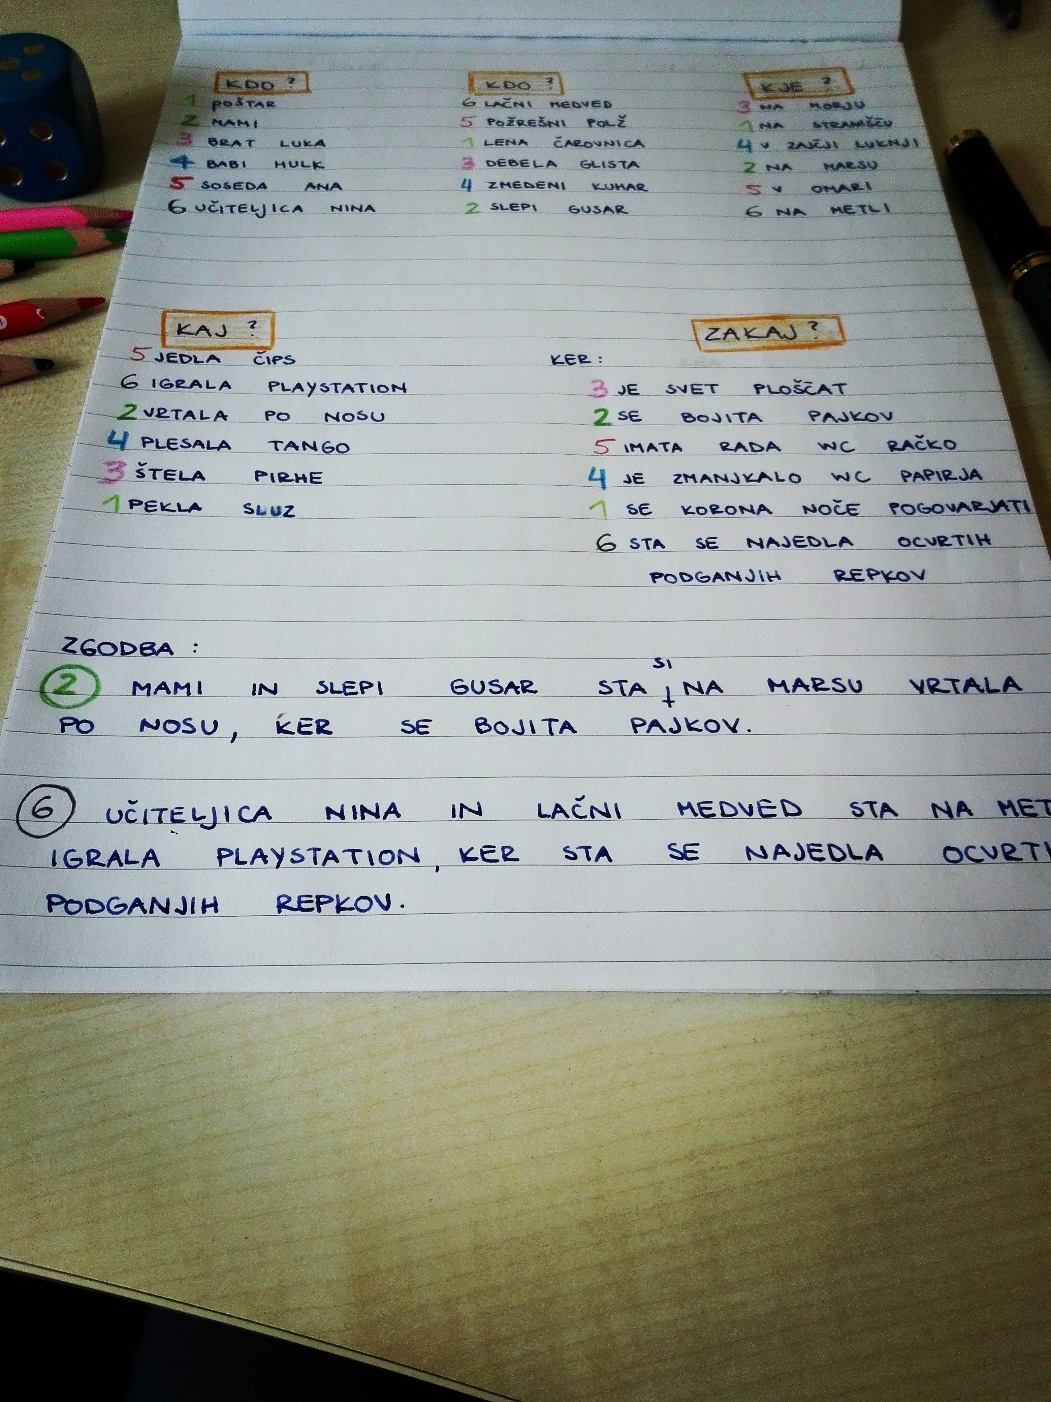 KDO ?
1 POŠTAR
2 MAMI
3 BRAT LUKA
4 BABI HULK
5 SOSEDA ANA
6 UČITELJICA NINA
KDO ?
6 LAČNI MEDVED
5 POŽREŠNI POLŽ
1 LENA ČAROVNICA
3 DEBELA GLISTA
4 ZMEDENI KUHAR
2 SLEPI GUSAR
KJE ?
3 NA MORJU
1 NA STRANIŠČU
4 V ZAJČJI LUKNJI
2 NA MARSU
5 V OMARI
6 NA METLI
KAJ ?
5 JEDLA ČIPS
6 IGRALA PLAYSTATION
2 VRTALA PO NOSU
4 PLESALA TANGO
3 ŠTELA PIRHE
1 PEKLA SLUZ
ZAKAJ ?
KER :
3 JE SVET PLOŠČAT
2 SE BOJITA PAJKOV
5 IMATA RADA WC RAČKO
4 JE ZMANJKALO WC PAPIRJA
1 SE KORONA NOČE POGOVARJATI
6 STA SE NAJEDLA OCVRTIH
PODGANJIH REPKOV
ZGODBA :
SI
2 MAMI IN SLEPI GUSAR STA NA MARSU VRTALA
PO NOSU, KER SE BOJITA PAJKOV.
6 UČITELJICA NINA IN LAČNI MEDVED STA NA MET
IGRALA PLAYSTATION, KER STA SE NAJEDLA OCVRTI
PODGANJIH REPKOV.